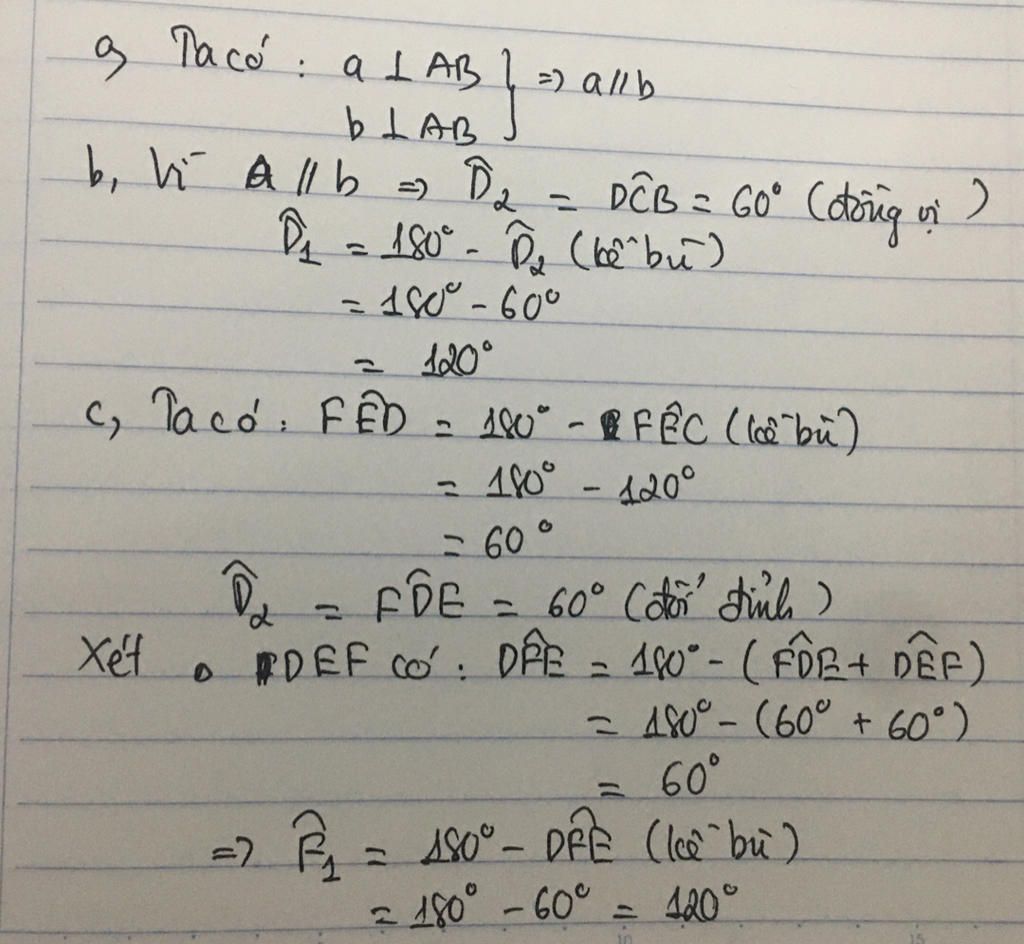 a, Ta có: a ⊥ AB } ⇒ a // b
b ⊥ AB
b, Vì a // b ⇒ D̂₂ = DĈB = 60° (đồng vị)
D̂₁ = 180° - D̂₂ (kề bù)
= 180° - 60°
= 120°
c, Ta có: FÊD = 180° - FÊC (kề bù)
= 180° - 120°
= 60°
D̂₂ = FD̂E = 60° (đối đỉnh)
Xét △ DEF có: DF̂E = 180° - (FD̂E + DÊF)
= 180° - (60° + 60°)
= 60°
⇒ F̂₁ = 180° - DF̂E (kề bù)
= 180° - 60° = 120°
10 15